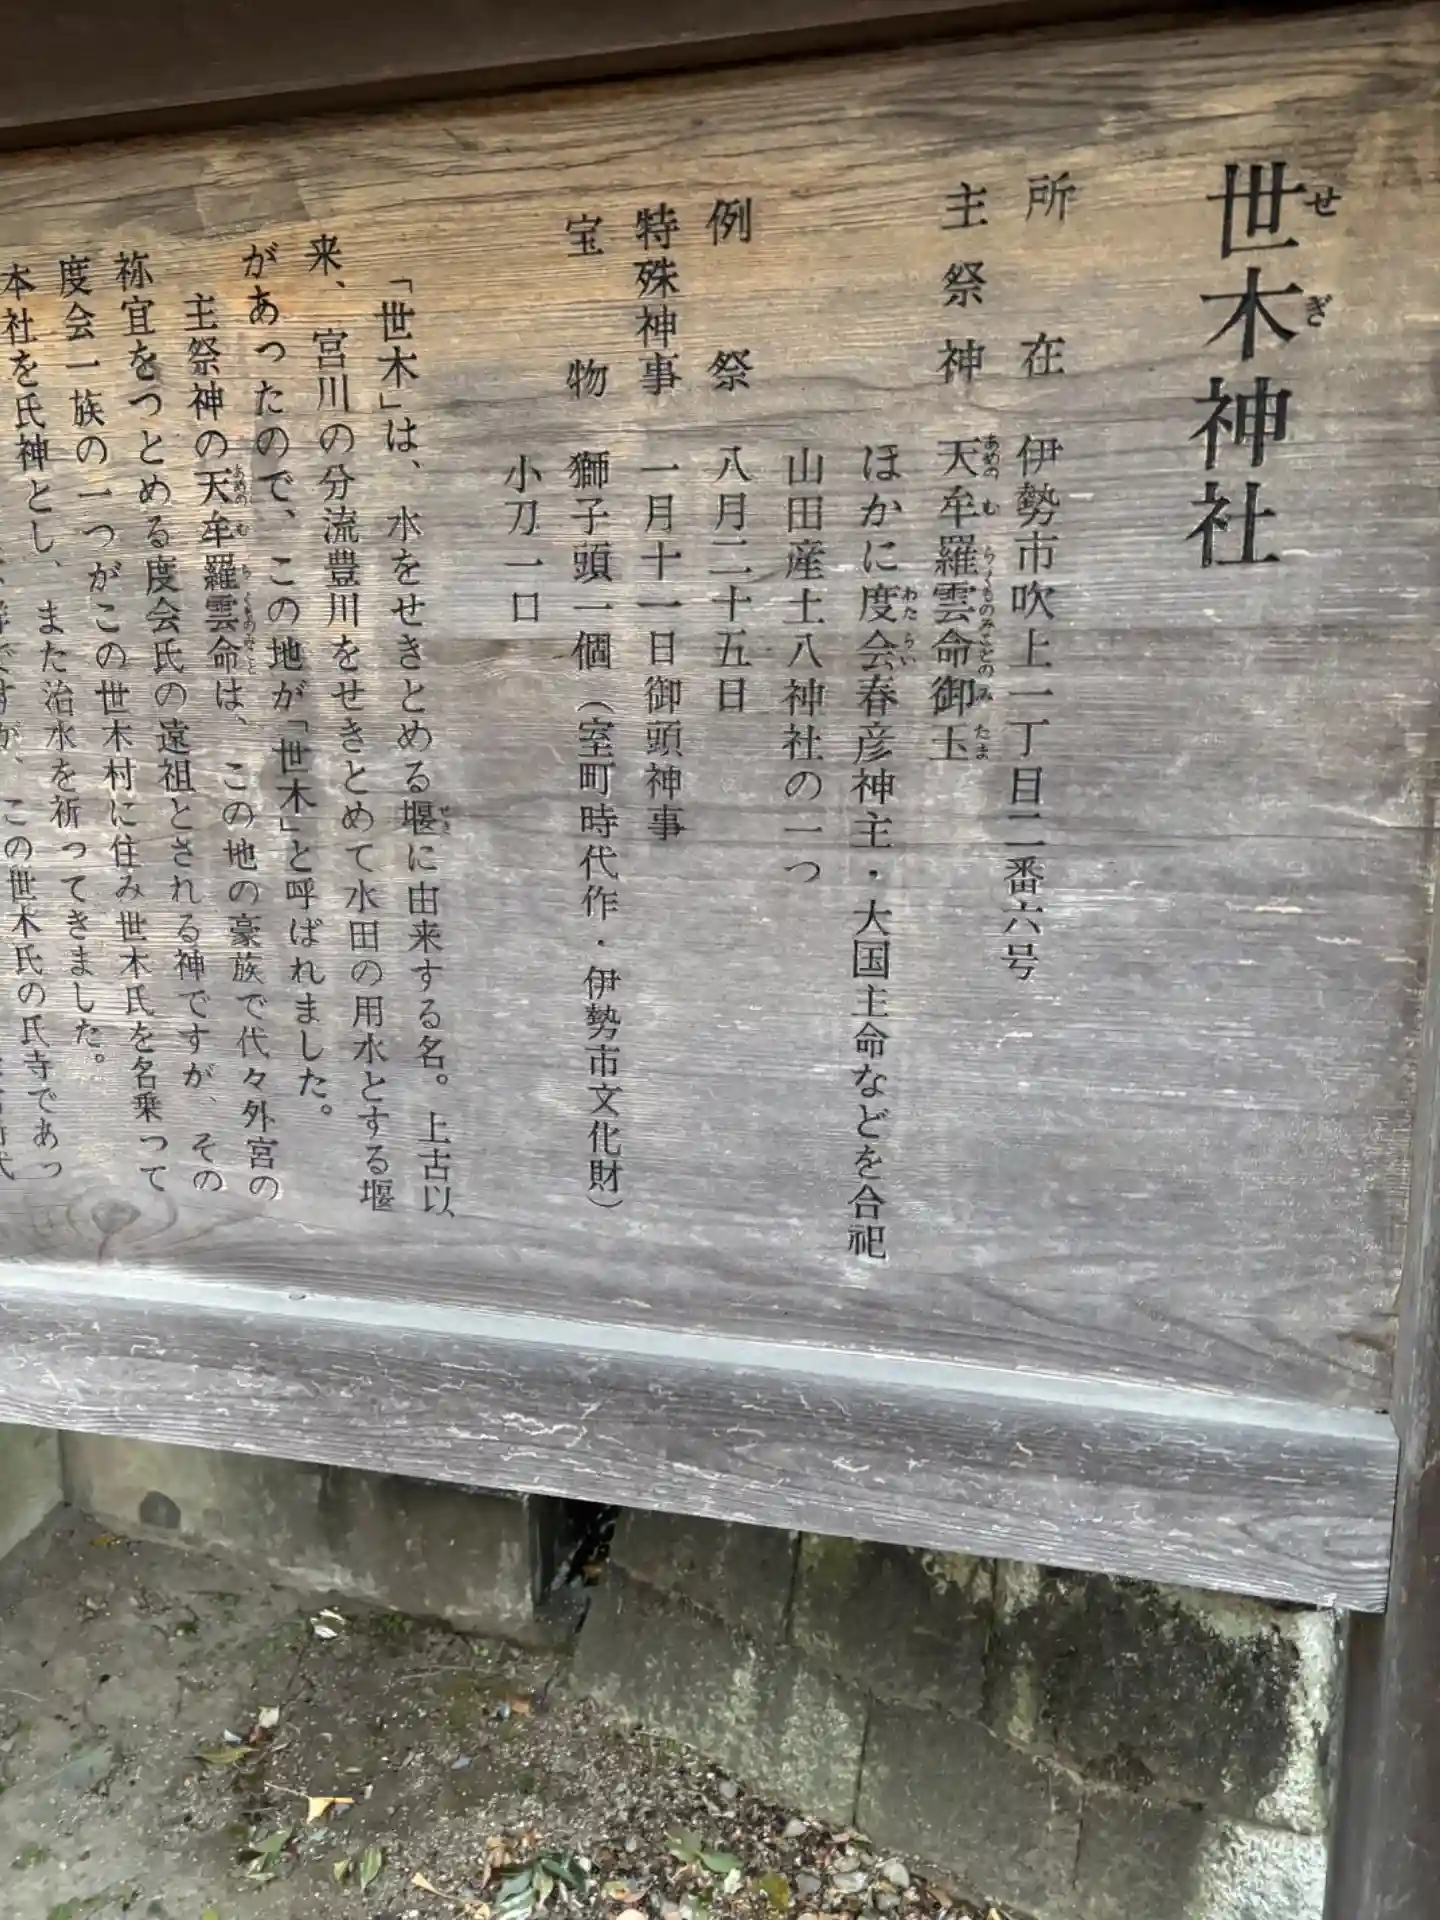 世木神社
せぎ
所在 伊勢市吹上一丁目二番六号
主祭神 天牟羅雲命御玉
あめのむらくものみことのみたま
ほかに度会春彦神主・大国主命などを合祀
わたらい
山田産土八神社の一つ
例祭 八月二十五日
特殊神事 一月十一日御頭神事
宝物 獅子頭一個（室町時代作・伊勢市文化財）
小刀一口
「世木」は、水をせきとめる堰に由来する名。上古以
せき
来、宮川の分流豊川をせきとめて水田の用水とする堰
があったので、この地が「世木」と呼ばれました。
主祭神の天牟羅雲命は、この地の豪族で代々外宮の
あめのむらくものみこと
祢宜をつとめる度会氏の遠祖とされる神ですが、その
度会一族の一つがこの世木村に住み世木氏を名乗って
本社を氏神とし、また治水を祈ってきました。
この世木氏の氏寺であっ